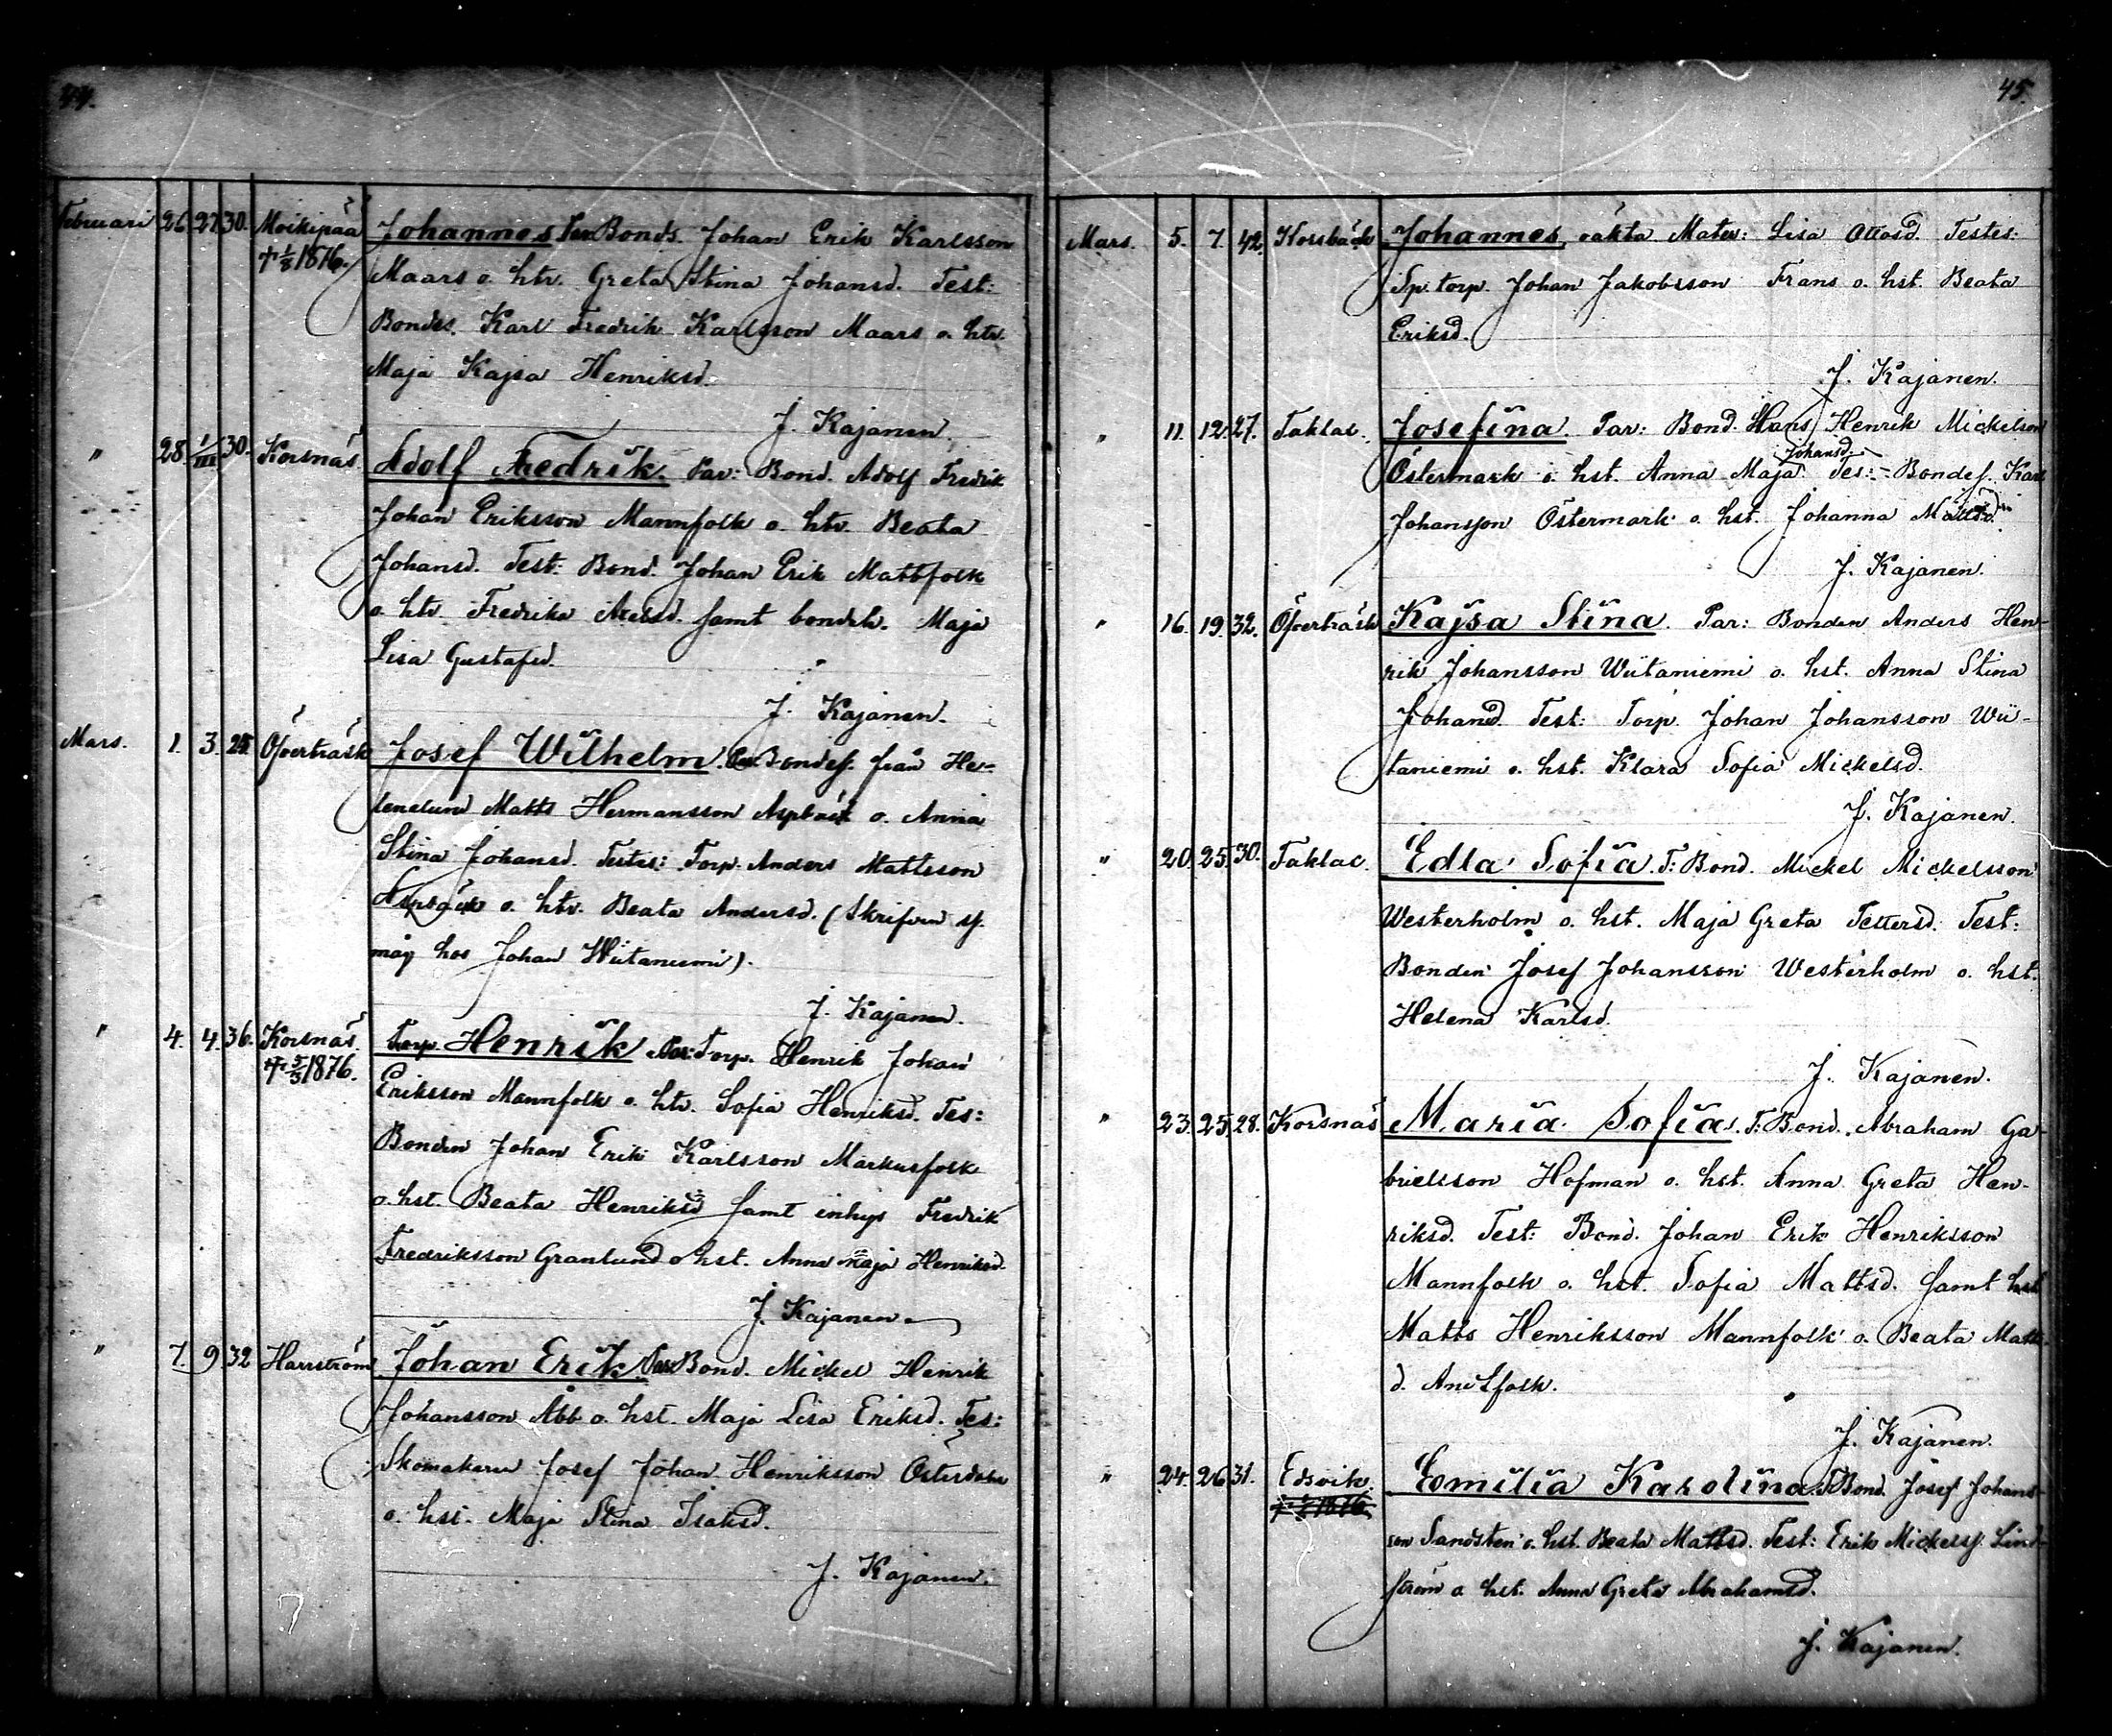 44.
Februari 26. 27. 30. Moikipää Johannes. Par: Bonds. Johan Erik Karlsson
† 1/8 1876. Maars o. htv. Greta Stina Johansd. Test:
Bondes. Karl Fredrik Karlsson Maars o. htv.
Maja Kajsa Henriksd.
J. Kajanen.
" 28. 1/III 30. Korsnäs Adolf Fredrik. Par: Bond. Adolf Fredrik
Johan Eriksson Mannfolk o. htv. Beata
Johansd. Test: Bond. Johan Erik Mattsfolk
o. htv. Fredrika samt bondeh. Maja
Lisa Gustafsd.
J. Kajanen.
Mars. 1. 3. 25. Öfverträsk Josef Wilhelm. Par: Bondes. från He-
lenelund Matts Hermansson Aspbäck o. Anna
Stina Johansd. Testes: Torp. Anders Mattsson
Aspbäck o. htv. Beata Andersd. (Skrifven ss.
måg hos Johan Wiitaniemi).
J. Kajanen.
" 4. 4. 36. Korsnäs. Torp. Henrik Par: Torp. Henrik Johan
† 5/3 1876. Eriksson Mannfolk o. htv. Sofia Henriksd. Tes:
Bonden Johan Erik Karlsson Markusfolk
o. hst. Beata Henriksd samt inhys Fredrik
Fredriksson Granlund o hst. Anna Maja Henriksd.
J. Kajanen.
" 7. 9 32 Harrström Johan Erik. Par: Bond. Mickel Henrik
Johansson Åbb o. hst. Maja Lisa Eriksd. Tes:
Skomakare Josef Johan Henriksson
o. hst. Maja Stina Isaksd.
J. Kajanen.
45.
Mars. 5. 7. 42. Korsbäck Johannes, oäkta Mater: Lisa Ottosd. Testes:
Sp. torp. Johan Jakobsson Frans o. hst. Beata
Eriksd.
J. Kajanen.
" 11. 12. 27. Taklax. Josefina. Par: Bond. Hans Henrik Mickelson
Johansd.
Östermark o. hst. Anna Maja Tes:- Bondes. Karl
Johansson Östermark o. hst. Johanna Mattsd.
J. Kajanen.
" 16. 19. 32. Öfverträsk Kajsa Stina. Par: Bonden Anders Hen-
rik Johansson Wiitaniemi o. hst. Anna Stina
Johansd. Test: Torp. Johan Johansson Wii-
taniemi o. hst. Klara Sofia Mickelsd.
J. Kajanen.
" 20. 25. 30. Taklax. Edla Sofia. F: Bond. Mickel Mickelsson
Westerholm o. hst. Maja Greta Pettersd. Test:
Bonden Josef Johansson Westerholm o. hst.
Helena Karlsd.
J. Kajanen.
" 23. 25. 28. Korsnäs Maria Sofia. F: Bond. Abraham Ga-
brielsson Hofman o. hst. Anna Greta Hen-
riksd. Test: Bond. Johan Erik Henriksson
Mannfolk o. hst. Sofia Mattsd. samt
Matts Henriksson Mannfolk o. Beata Matts-
d.
J. Kajanen.
" 24. 26 31. Edsvik. Emilia Karolina. F: Bond. Josef Johans-
son Sandsten o. hst. Beata Mattsd. Test: Erik Mickelss. Lind-
ström o. hst. Anna Greta Abrahamsd.
J. Kajanen.